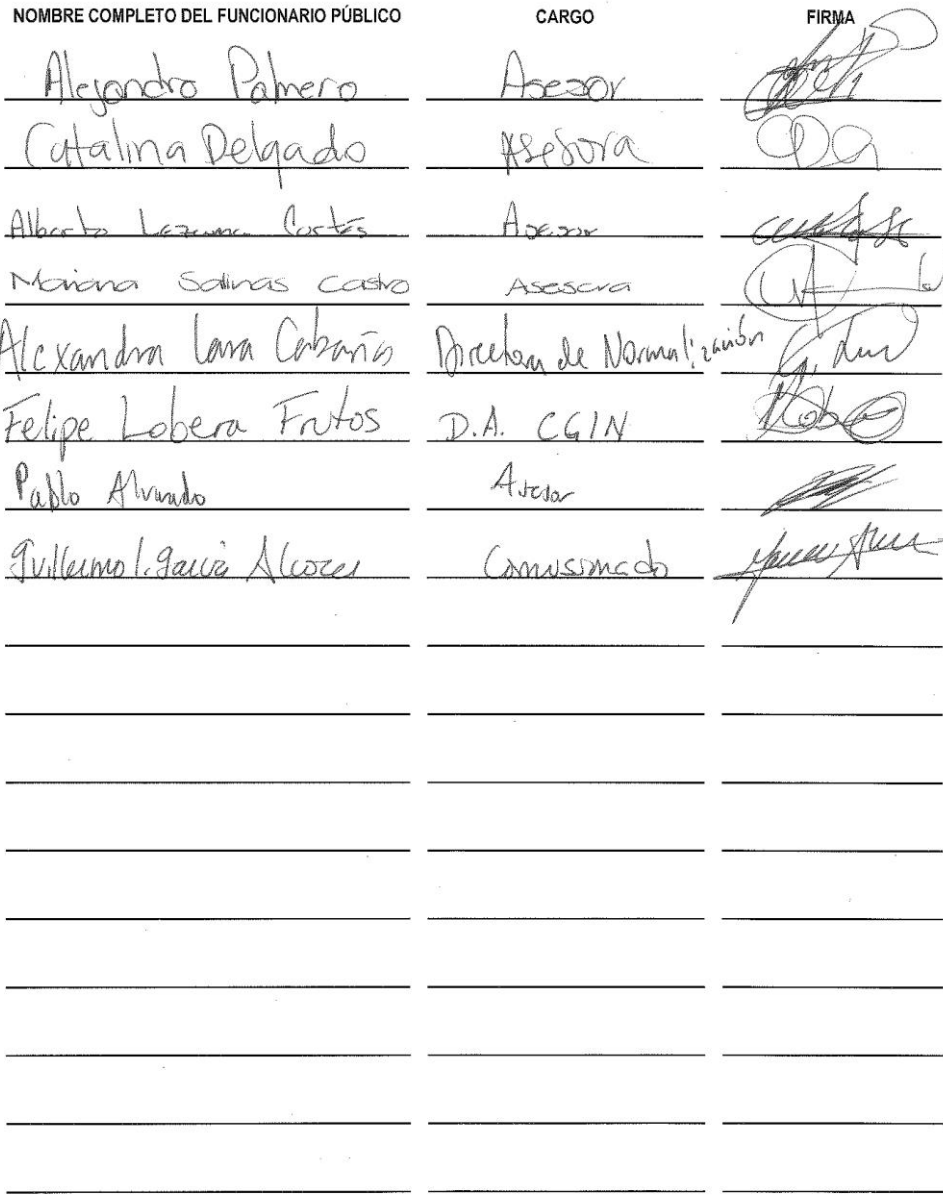 NOMBRE COMPLETO DEL FUNCIONARIO PÚBLICO CARGO FIRMA
Alejandro Palmero Asesor
Catalina Delgado Asesora
Alberto Lezama Cortés Asesor
Mariana Salinas Castro Asesora
Alexandra Lara Cabañas Directora de Normalización
Felipe Lobera Frutos D.A. CGIN
Pablo Alvarado Asesor
Guillermo I. García Alcocer Comisionado